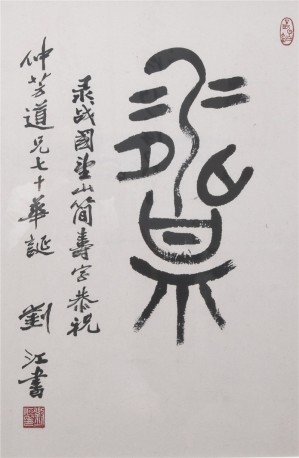 壽
录战國望山简壽字恭祝
仲芳道兄七十華誕
劉江書